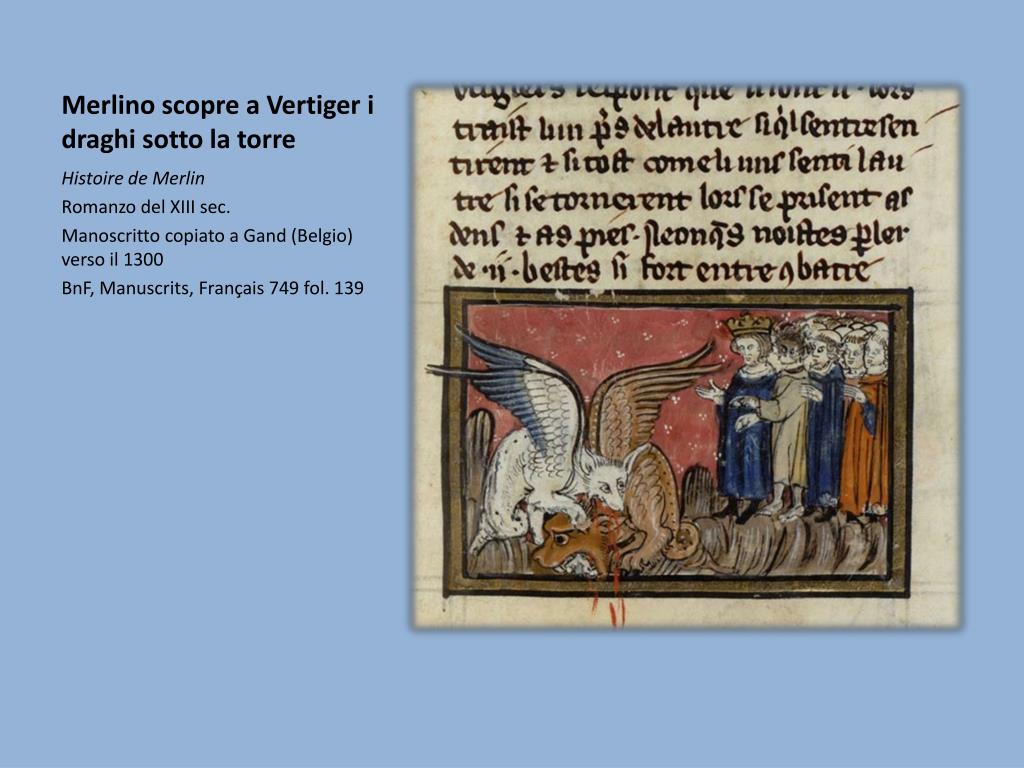 Merlino scopre a Vertiger i
draghi sotto la torre
Histoire de Merlin
Romanzo del XIII sec.
Manoscritto copiato a Gand (Belgio)
verso il 1300
BnF, Manuscrits, Français 749 fol. 139
que
lun p̄s delautre
tirent ⁊ si tost come li uns senti lau
tre si se tornerent lors se prisent as
dens ⁊ as pies
de .ii. bestes si fort entre ꝯbatre